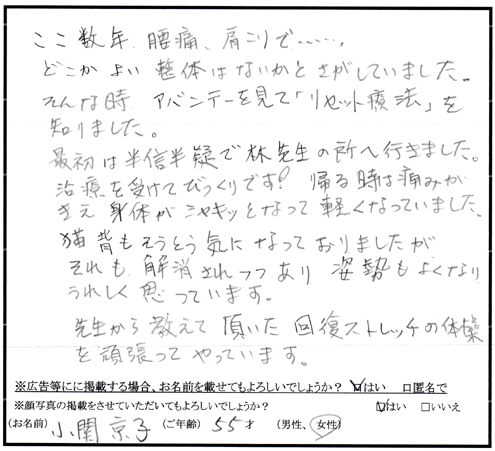 ここ数年、腰痛、肩こりで……、
どこかよい整体はないかとさがしていました。
そんな時、アバンテーを見て「リセット療法」を
知りました。
最初は半信半疑で林先生の所へ行きました。
治療を受けてびっくりです！帰る時は痛みが
きえ身体がシャキッとなって軽くなっていました。
猫背もそうとう気になっておりましたが
それも解消されつつあり姿勢もよくなり
うれしく思っています。
先生から教えて頂いた回復ストレッチの体操
を頑張ってやっています。
※広告等にに掲載する場合、お名前を載せてもよろしいでしょうか？ ☑はい □匿名で
※顔写真の掲載をさせていただいてもよろしいでしょうか？ ☑はい □いいえ
(お名前) 小関京子 (ご年齢) 55才 (男性、女性)